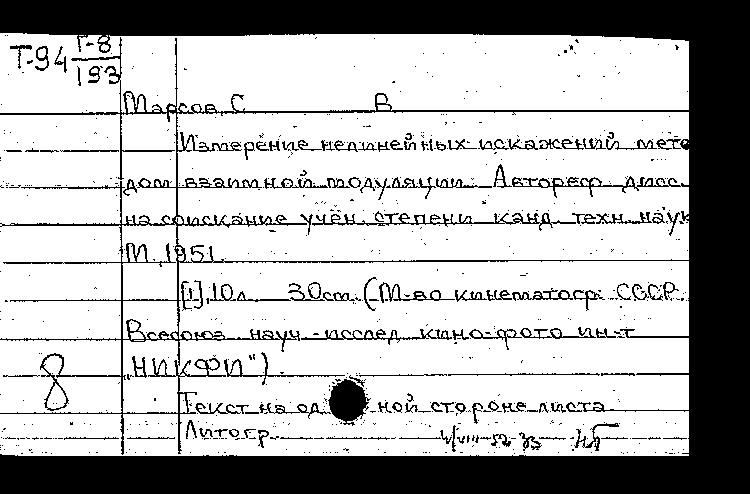 Т-94 Г-8
193
Марсов, С В
Измерение нелинейных искажений мето
дом взаимной модуляции. Автореф дисс.
на соискание учён. степени канд. техн. наук
М., 1951.
[1], 10 л. 30 см. (М-во кинематогр. СССР.
Всесоюз науч.-исслед. кино-фото ин-т
„НИКФИ").
8
Текст на од ной стороне листа
Литогр.